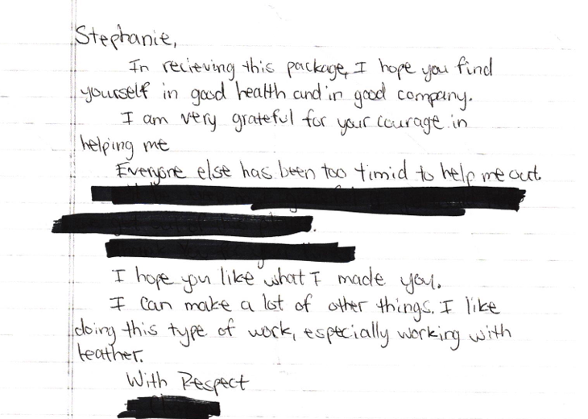 Stephanie,
In recieving this package, I hope you find
yourself in good health and in good company.
I am very grateful for your courage in
helping me
Everyone else has been too timid to help me out.
I hope you like what I made you.
I can make a lot of other things. I like
doing this type of work, especially working with
leather.
With Respect